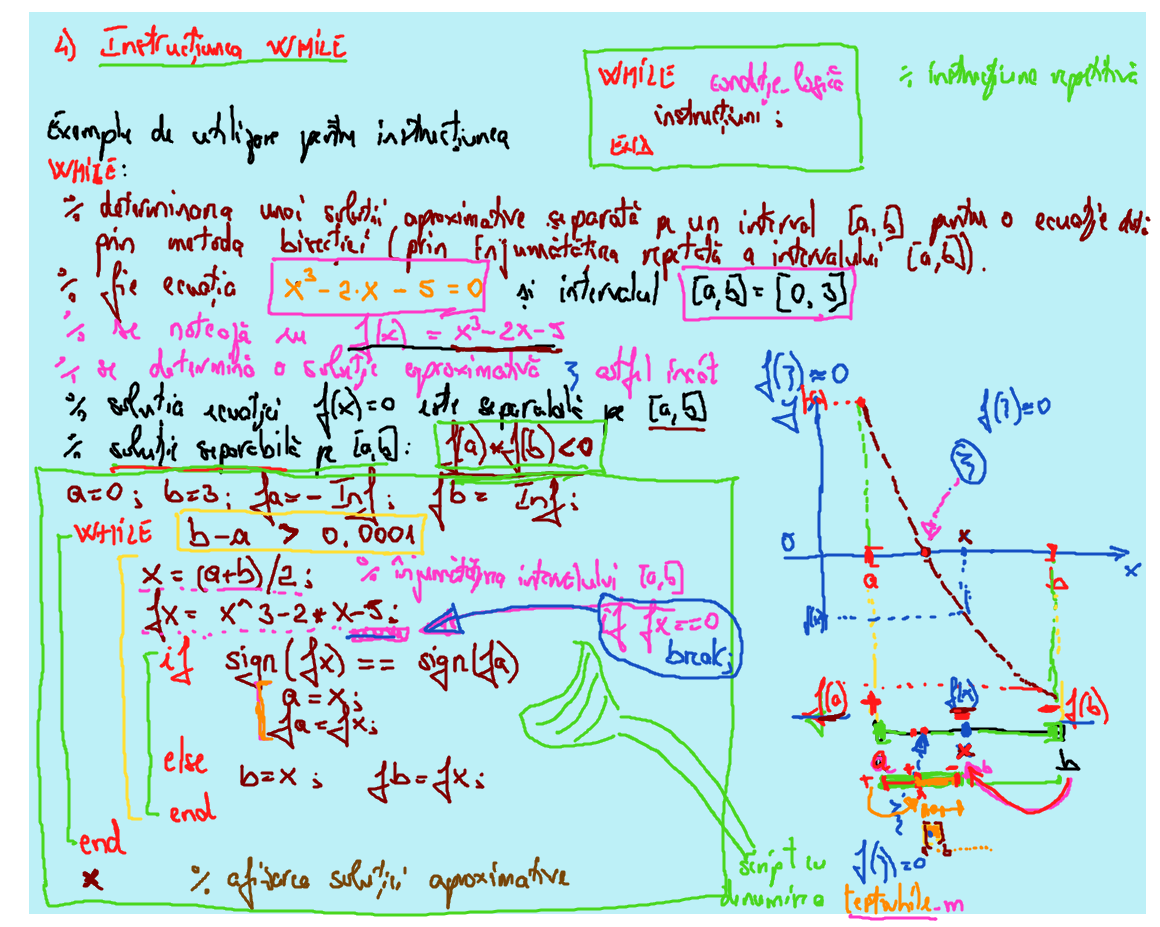 4) Instrucțiunea WHILE
WHILE condiție_logică
instrucțiuni;
END
% instrucțiune repetitivă
Exemple de utilizare pentru instrucțiunea
WHILE:
% determinarea unei soluții aproximative separată pe un interval [a,b] pentru o ecuație
prin metoda bisecției (prin înjumătățirea repetată a intervalului [a,b]).
% fie ecuația x^3-2·x-5=0 și intervalul [a,b]=[0,3]
% se notează cu f(x) = x^3-2x-5
% se determină o soluție aproximativă ξ astfel încât f(ξ)≈0
% soluția ecuației f(x)=0 este separabilă pe [a,b]
% soluție separabilă pe [a,b]: f(a)*f(b)<0
a=0; b=3; fa=-Inf; fb= Inf;
WHILE b-a > 0,0001
x=(a+b)/2; % înjumătățirea intervalului [a,b]
fx= x^3-2*x-5;
if fx==0
break;
if sign(fx) == sign(fa)
a=x;
fa=fx;
else
b=x; fb=fx;
end
end
x % afișarea soluției aproximative
script cu
denumirea testwhile.m
y
f(ξ)≈0
ξ
0
a
x
b
x
f(x)
f(a)
+
f(x)
-
f(b)
a
x
b
+
-
b
ξ
f(ξ)=0